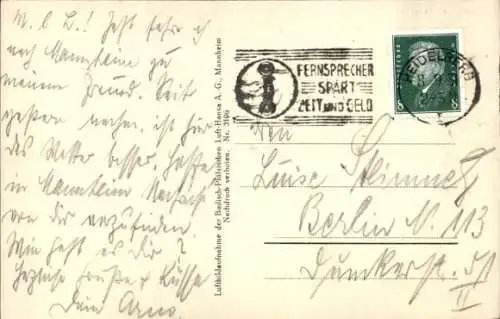 M. l. L.! Jetzt fahr ich
nach Mannheim zu
meinem Freund. Seit
gestern nachm. ist hier
das Wetter besser, hoffe
in Mannheim Nachricht
von dir vorzufinden.
Wie geht es dir?
Herzliche Grüße + Küsse
Dein Arno.
Luftbildaufnahme der Badisch-Pfälzischen Luft-Hansa A. G., Mannheim
Nachdruck verboten. Nr. 3190
FERNSPRECHER
SPART
ZEIT UND GELD
HEIDELBERG
8 8
Luise
Berlin N. 113
Dunckerstr. 51
II